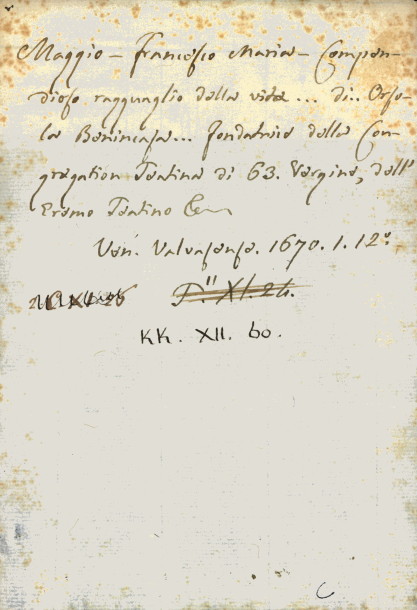 Maggio - Francesco Maria - Compen-
dioso ragguaglio della vita ... di.. Orso-
la Benincasa... fondatrice della Con-
gregation Teatina di 63. Vergine, dell'
Eremo Teatino
Ven. Valvasense. 1670. 1. 12.º
P.II XI. 24.
KK. XII. 60.